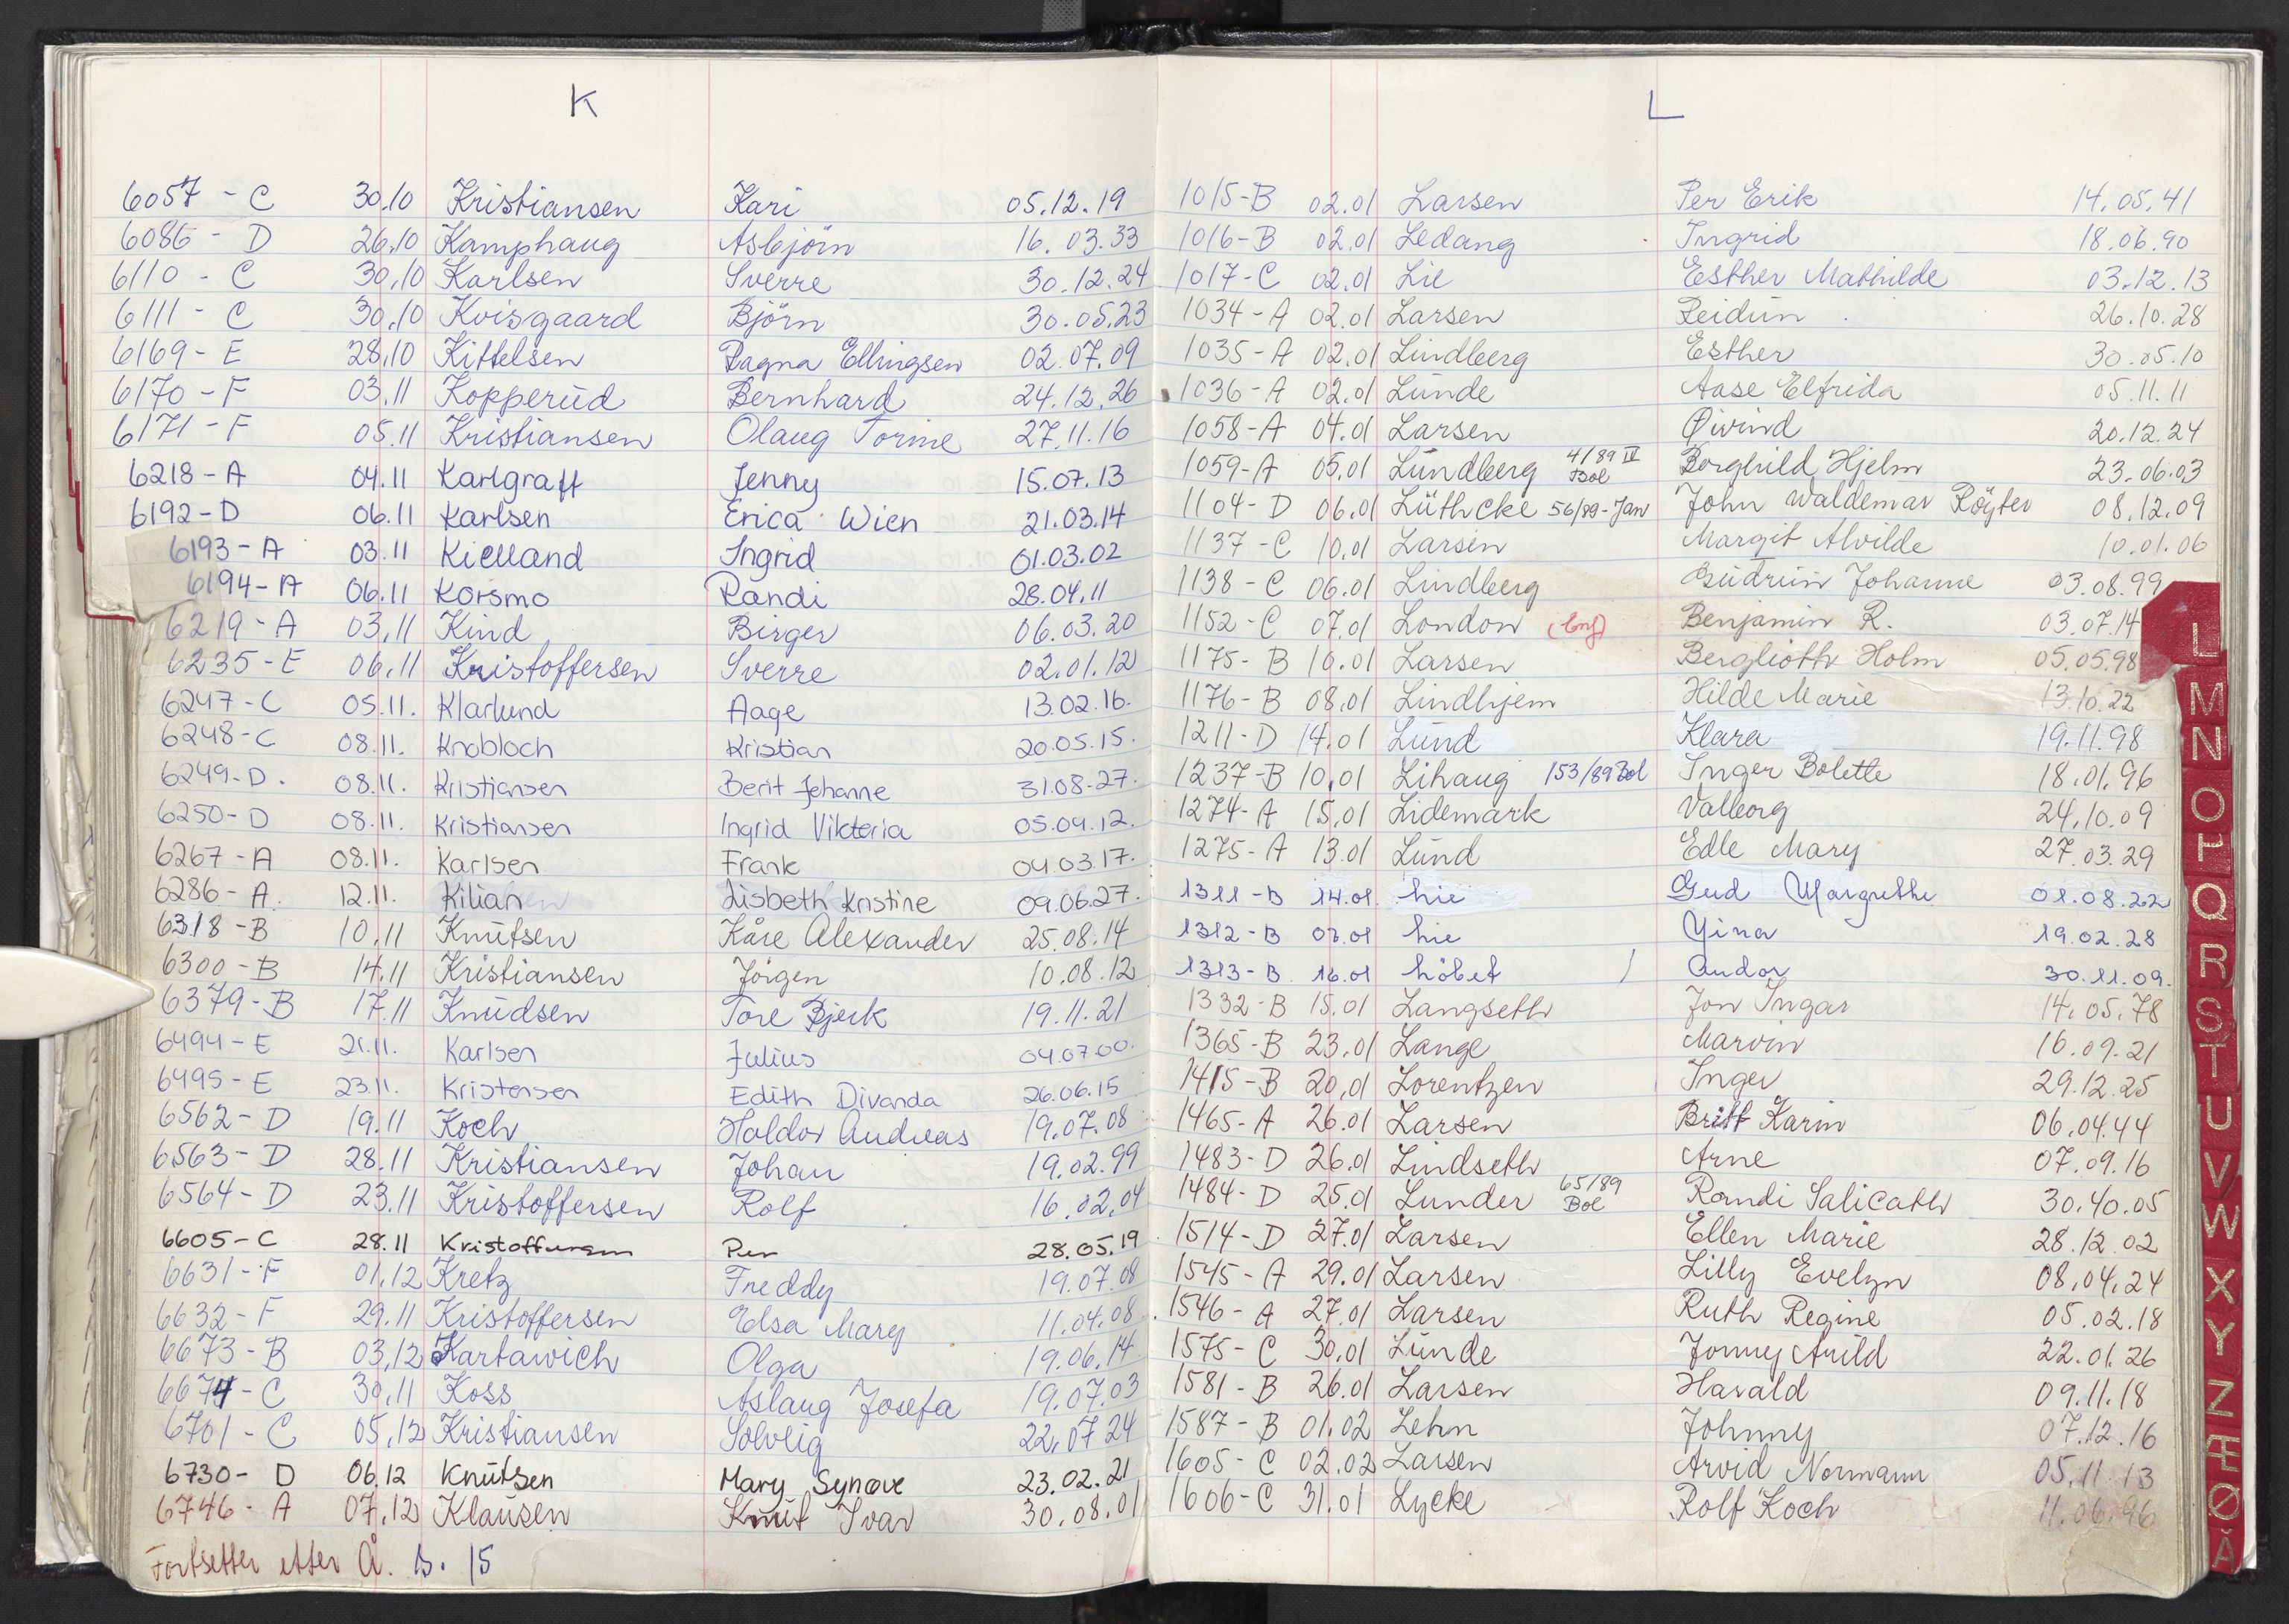 K
6057 - C 30.10 Kristiansen Kari 05.12.19
6086 - D 26.10 Kamphaug Asbjörn 16.03.33
6110 - C 30.10 Karlsen Sverre 30.12.24
6111 - C 30.10 Kvisgaard Björn 30.05.23
6169 - E 28.10 Kittelsen Ragna Ellingsen 02.07.09
6170 - F 03.11 Kopperud Bernhard 24.12.26
6171 - F 05.11 Kristiansen Olaug Torine 27.11.16
6218 - A 04.11 Karlgraff Jenny 15.07.13
6192 - D 06.11 Karlsen Erica Wien 21.03.14
6193 - A 03.11 Kielland Ingrid 01.03.02
6194 - A 06.11 Korsmo Randi 28.04.11
6219 - A 03.11 Kind Birger 06.03.20
6235 - E 06.11 Kristoffersen Sverre 02.01.12
6247 - C 05.11. Klarlund Aage 13.02.16.
6248 - C 08.11. Knobloch Kristian 20.05.15.
6249 - D. 08.11. Kristiansen Berit Johanne 31.08.27.
6250 - D 08.11. Kristiansen Ingrid Viktoria 05.04.12.
6267 - A 08.11. Karlsen Frank 04.03.17.
6286 - A. 12.11. Kilian Lisbeth Kristine 09.06.27.
6318 - B 10.11 Knutsen Kåre Alexander 25.08.14
6300 - B 14.11 Kristiansen Jörgen 10.08.12
6379 - B 17.11 Knudsen Tore Bjerk 19.11.21
6494 - E 21.11. Karlsen Julius 04.07.00.
6495 - E 23.11. Kristensen Edith Divanda 26.06.15
6562 - D 19.11 Koch Haldor Andreas 19.07.08
6563 - D 28.11 Kristiansen Johan 19.02.99
6564 - D 23.11 Kristoffersen Rolf 16.02.04
6605 - C 28.11 Kristoffersen Per 28.05.19
6631 - F 01.12 Kretz Freddy 19.07.08
6632 - F 29.11 Kristoffersen Elsa Mary 11.04.08
6673 - B 03.12 Kartawich Olga 19.06.14
6674 - C 30.11 Koss Aslaug Josefa 19.07.03
6701 - C 05.12 Kristiansen Solveig 22.07.24
6730 - D 06.12 Knutsen Mary Synøve 23.02.21
6746 - A 07.12 Klausen Knut Ivar 30.08.01
Fortsetter etter Å. s. 15
L
1015-B 02.01 Larsen Per Erik 14.05.41
1016-B 02.01 Ledang Ingrid 18.06.90
1017-C 02.01 Lie Esther Mathilde 03.12.13
1034-A 02.01 Larsen Reidun 26.10.28
1035-A 02.01 Lindberg Esther 30.05.10
1036-A 02.01 Lunde Aase Elfrida 05.11.11
1058-A 04.01 Larsen Øivind 20.12.24
1059-A 05.01 Lundberg 4/89 IV Bol Borghild Hjelm 23.06.03
1104-D 06.01 Lüthcke 56/89-Jan John Waldemar 08.12.09
1137-C 10.01 Larsen Margit Alvilde 10.01.06
1138-C 06.01 Lindberg Gudrun Johanne 03.08.99
1152-C 07.01 London (Eng) Benjamin R. 03.07.14
1175-B 10.01 Larsen Bergliotth Holm 05.05.98
1176-B 08.01 Lindhjem Hilde Marie 13.10.22
1211-D 14.01 Lund Klara 19.11.98
1237-B 10.01 Lihaug 153/89 Bol Inger Bolette 18.01.96
1274-A 15.01 Lidemark Valborg 24.10.09
1275-A 13.01 Lund Edle Mary 27.03.29
1311-B 14.01 Lie Gud Margrethe 01.08.22
1312-B 07.01 Lie 19.02.28
1313-B 16.01 Löbet Andor 30.11.09.
1332-B 15.01 Langseth Jon Ingar 14.05.78
1365-B 23.01 Lange Marvin 16.09.21
1415-B 20.01 Lorentzen Inger 29.12.25
1465-A 26.01 Larsen Britt Karin 06.04.44
1483-D 26.01 Lindseth Arne 07.09.16
1484-D 25.01 Lunder 65/89 Bol Randi Salicath 30.10.05
1514-D 27.01 Larsen Ellen Marie 28.12.02
1545-A 29.01 Larsen Lilly Evelyn 08.04.24
1546-A 27.01 Larsen Ruth Regine 05.02.18
1575-C 30.01 Lunde Jonny Arild 22.01.26
1581-B 26.01 Larsen Harald 09.11.18
1587-B 01.02 Lehn Johnny 07.12.16
1605-C 02.02 Larsen Arvid Normann 05.11.13
1606-C 31.01 Lycke Rolf Koch 11.06.96
L
M
N
O
P
Q
R
S
T
U
V
W
X
Y
Z
Æ
Ø
Å